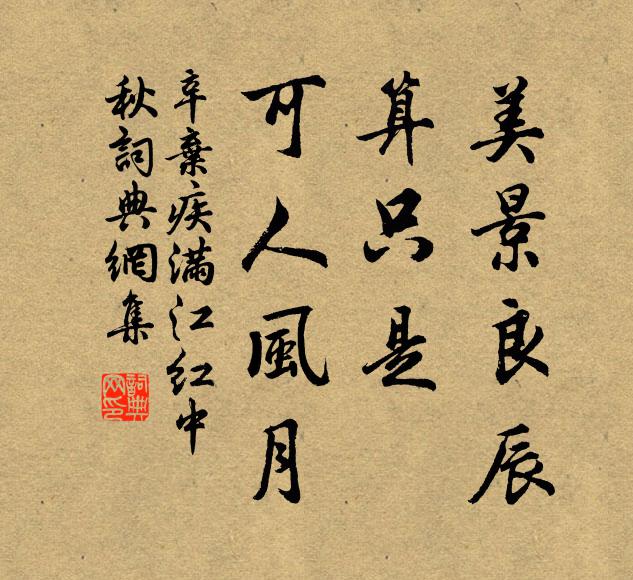 美景良辰
算只是
可人風月
辛棄疾滿江紅中
秋詞典網集
詞典網印